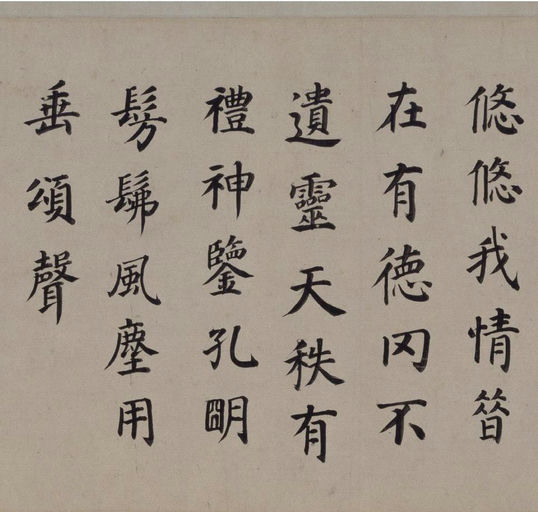 悠悠我情昔
在有德罔不
遺靈天秩有
禮神鑒孔朙
髣髴風塵用
垂頌聲